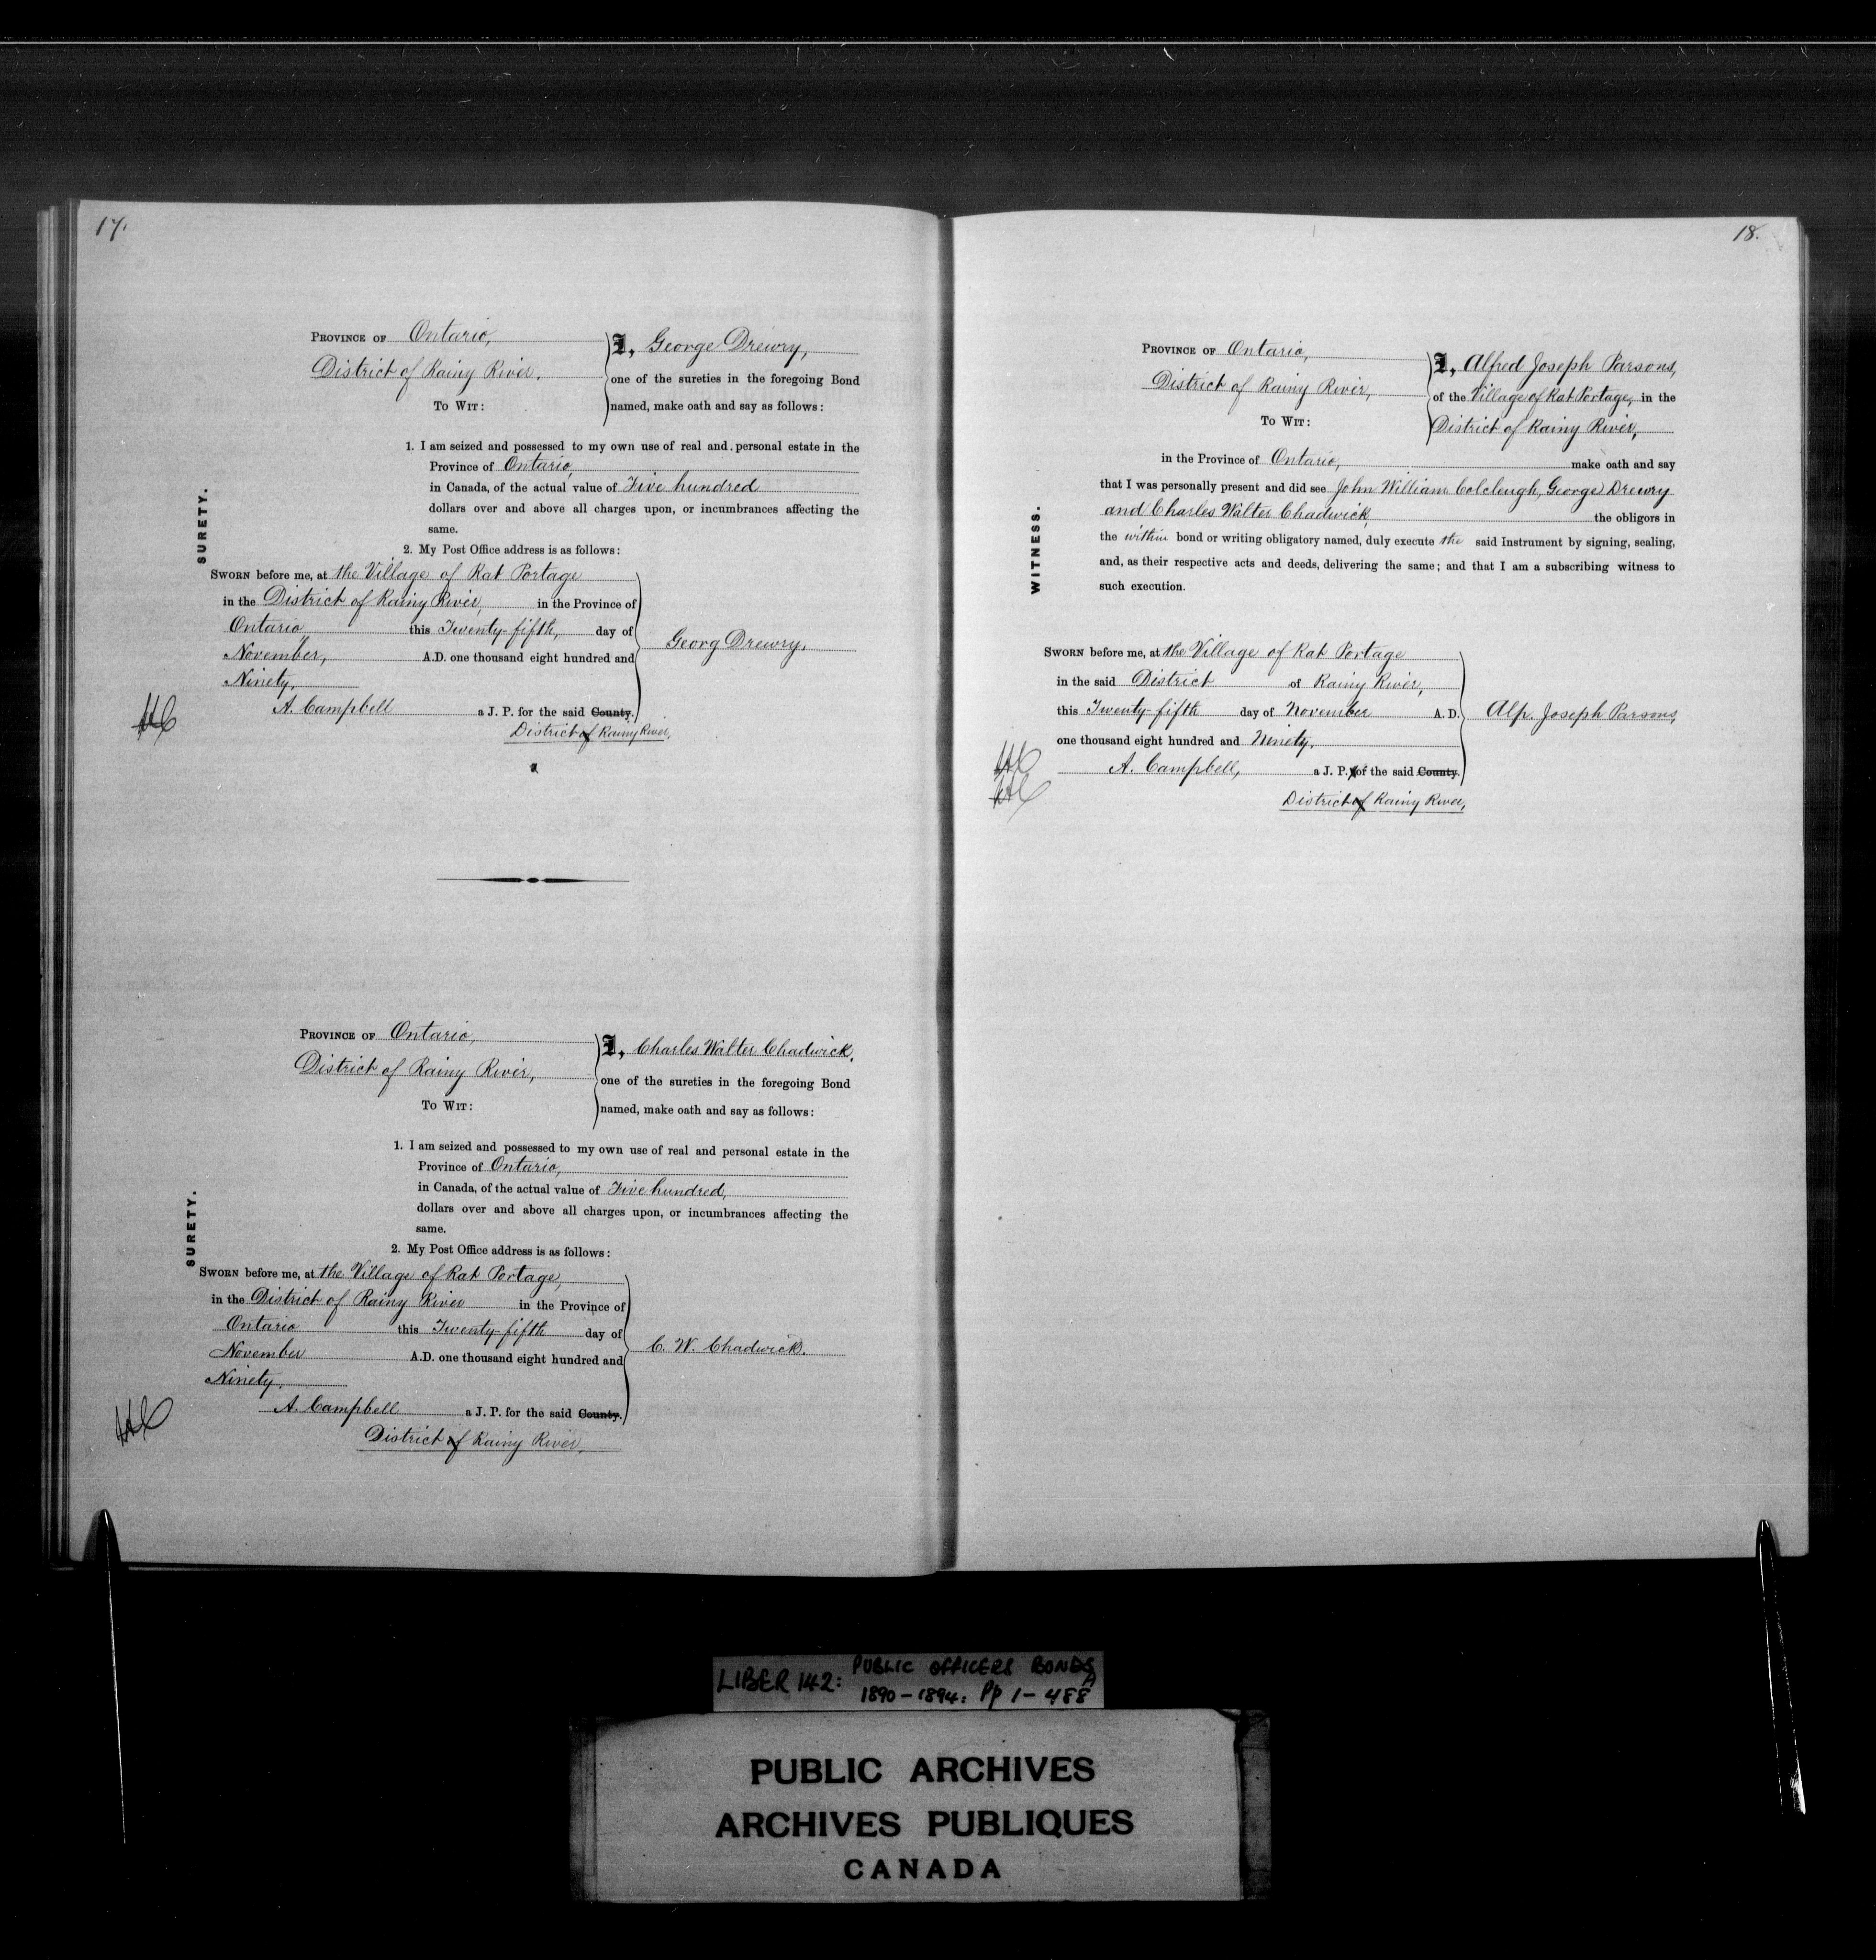 17.
PROVINCE OF Ontario,
District of Rainy River.
TO WIT:
I, George Drewry,
one of the sureties in the foregoing Bond
named, make oath and say as follows:
1. I am seized and possessed to my own use of real and personal estate in the
Province of Ontario,
in Canada, of the actual value of Five hundred
dollars over and above all charges upon, or incumbrances affecting the
same.
2. My Post Office address is as follows:
SURETY.
SWORN before me, at the Village of Rat Portage
in the District of Rainy River, in the Province of
Ontario this Twenty-fifth, day of
November, A.D. one thousand eight hundred and
Ninety,
Georg Drewry.
A. Campbell a J. P. for the said County.
District of Rainy River,
PROVINCE OF Ontario,
District of Rainy River,
TO WIT:
I, Charles Walter Chadwick,
one of the sureties in the foregoing Bond
named, make oath and say as follows:
1. I am seized and possessed to my own use of real and personal estate in the
Province of Ontario,
in Canada, of the actual value of Five hundred,
dollars over and above all charges upon, or incumbrances affecting the
same.
2. My Post Office address is as follows:
SURETY.
SWORN before me, at the Village of Rat Portage,
in the District of Rainy River in the Province of
Ontario this Twenty-fifth day of
November A.D. one thousand eight hundred and
Ninety.
C. W. Chadwick.
A. Campbell a J. P. for the said County.
District of Rainy River.
18.
PROVINCE OF Ontario,
District of Rainy River,
TO WIT:
I, Alfred Joseph Parsons,
of the Village of Rat Portage, in the
District of Rainy River,
in the Province of Ontario, make oath and say
that I was personally present and did see John William Colcleugh, George Drewry
and Charles Walter Chadwick the obligors in
the within bond or writing obligatory named, duly execute the said Instrument by signing, sealing,
and, as their respective acts and deeds, delivering the same; and that I am a subscribing witness to
such execution.
WITNESS.
SWORN before me, at the Village of Rat Portage
in the said District of Rainy River,
this Twenty-fifth day of November A. D.
one thousand eight hundred and Ninety,
Alf. Joseph Parsons,
A. Campbell, a J. P. for the said County.
District of Rainy River,
LIBER 142: PUBLIC OFFICERS BONDS
1890-1894: Pp 1-488A
PUBLIC ARCHIVES
ARCHIVES PUBLIQUES
CANADA